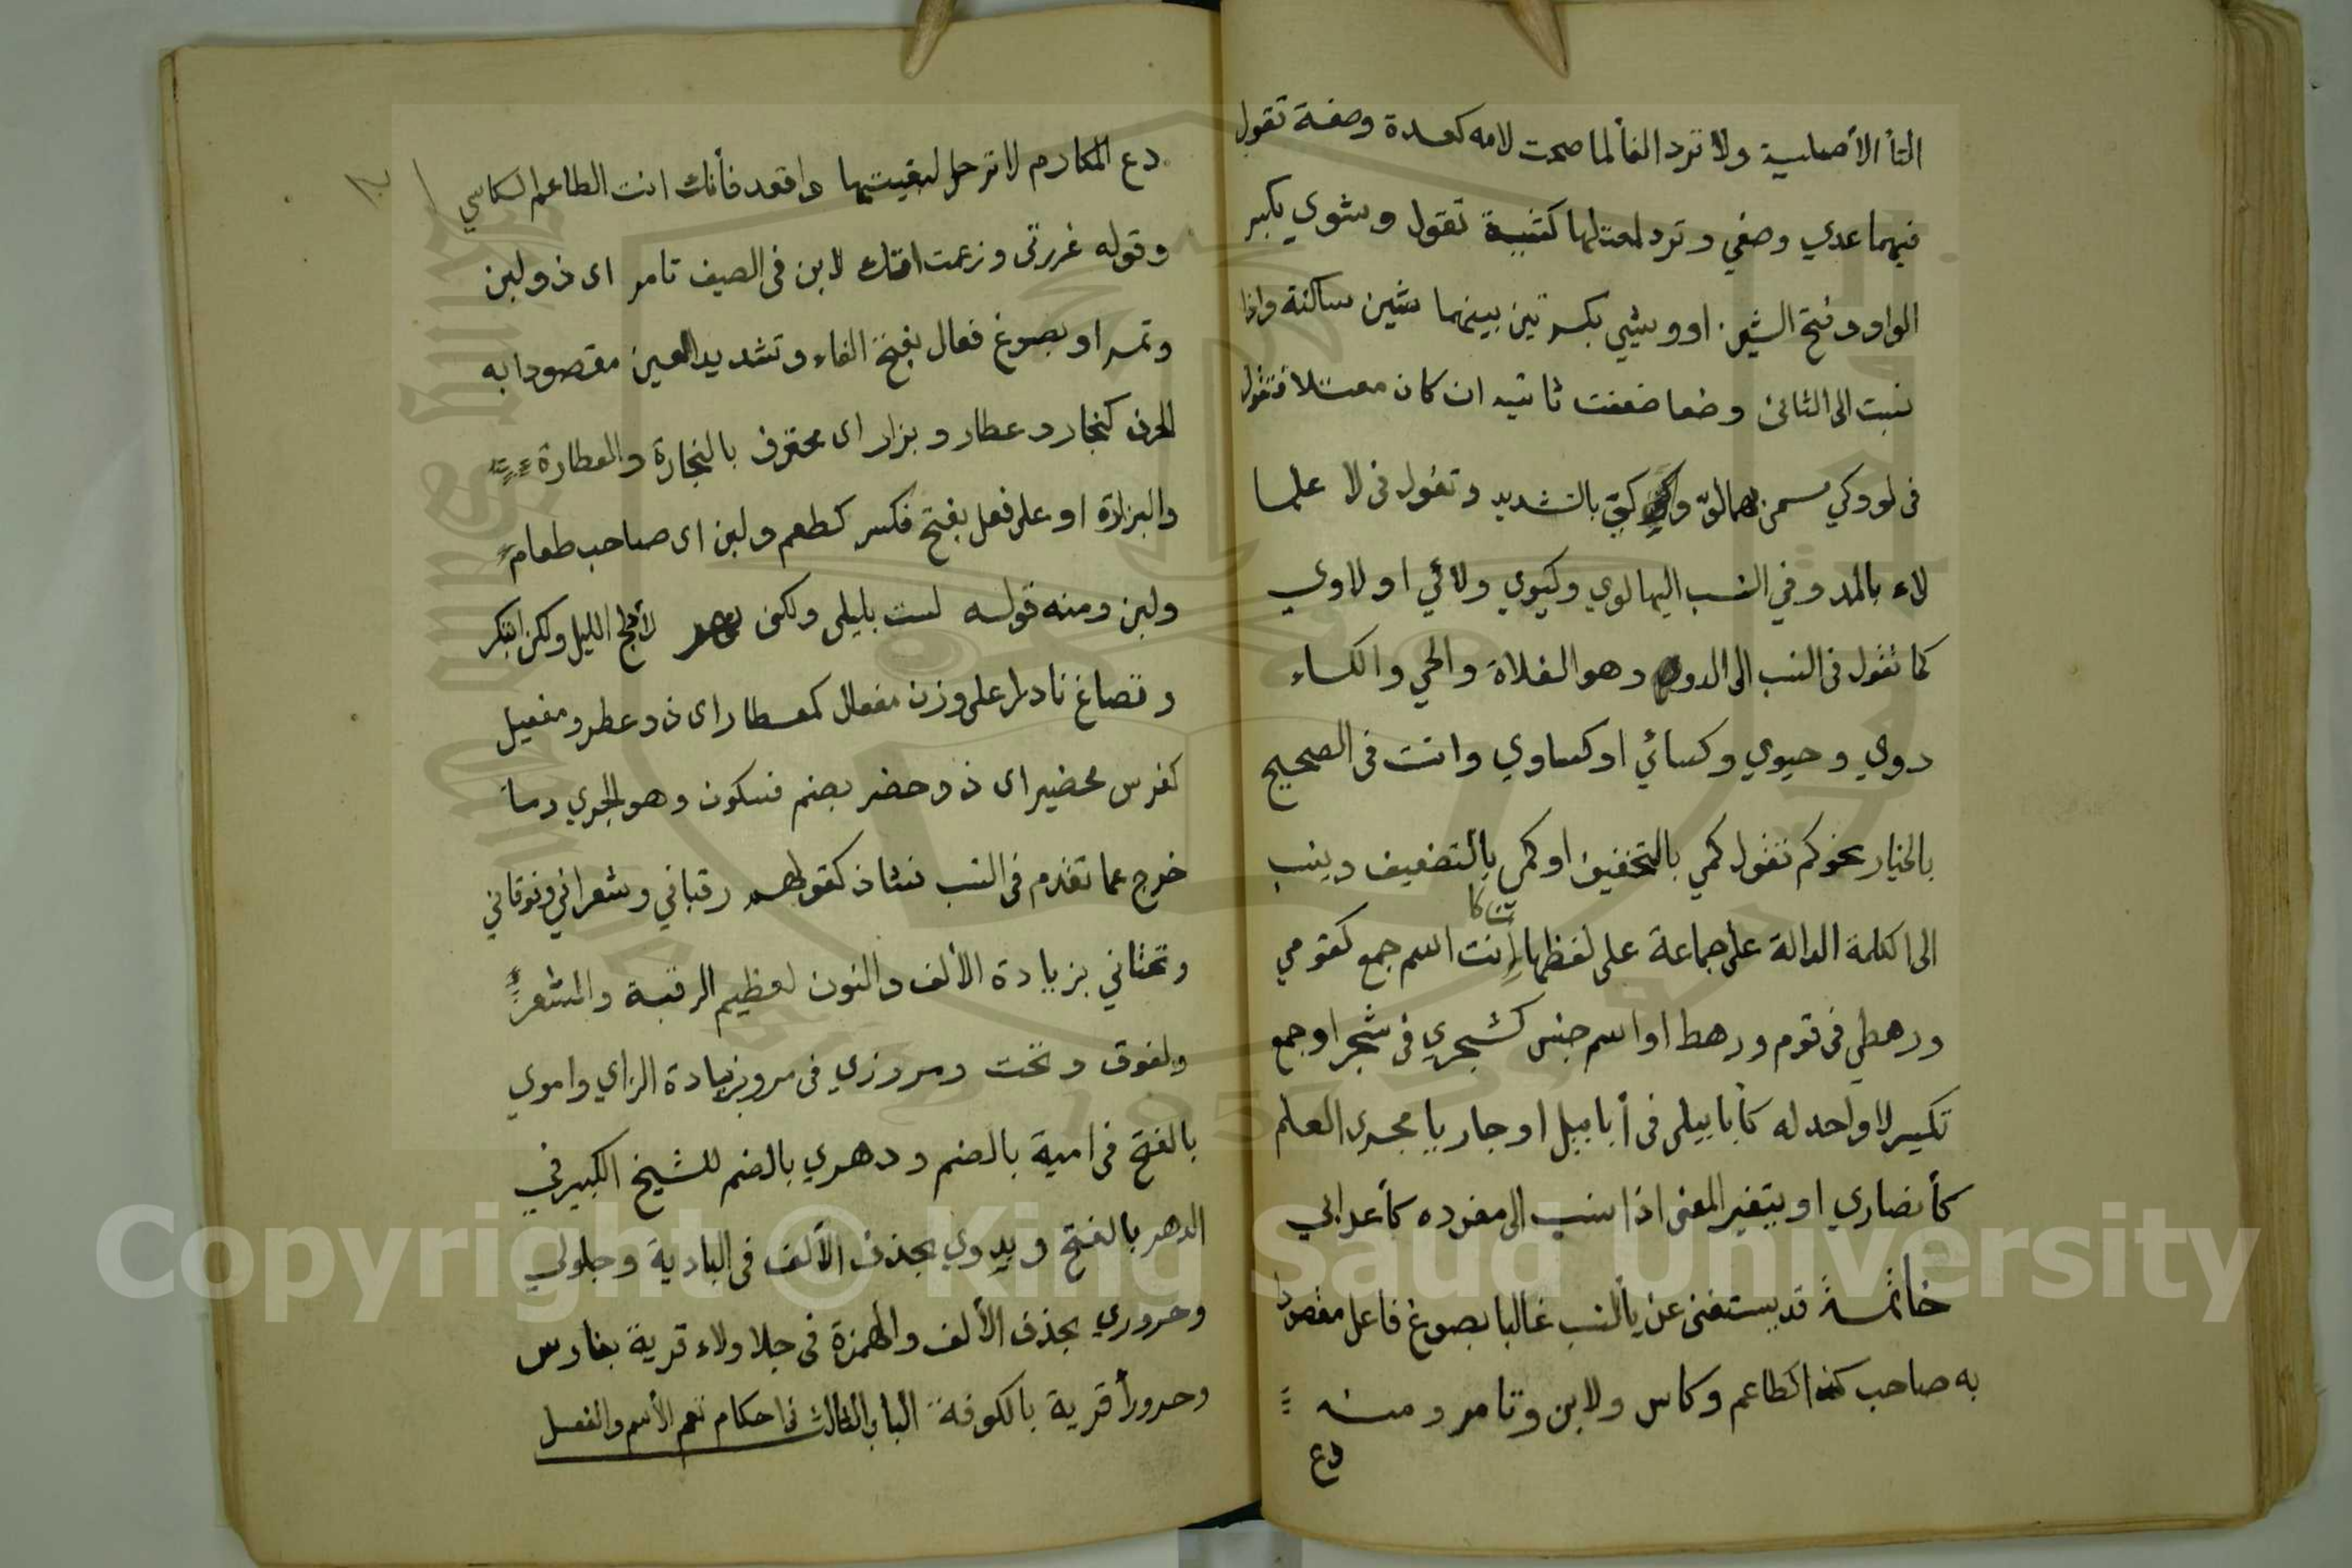 التأ الأصلية ولا ترد الفألما صحت لامه كعدة وصفة تقول
فيهما عدي وصفي وترد لمعتلها كشية تقول وشوي بكسر
الواو وفتح الشين او وشيي بكسرتين بينهما شين ساكنة واذا
نسبت الى الثنائى وضعا ضعفت ثانيه ان كان معتلا فتقول
فى لو وكي مسمى بهما لوّ وكيّ بالتشديد وتقول فى لا علما
لاء بالمد وفي النسب اليها لوي وكيوي ولائي او لاوي
كما تقول فى النسب الى الدو وهو الفلاة والحي والكساء
دوي وحيوي وكسائي او كساوي وانت فى الصحيح
بالخيار نحو كم تقول كمي بالتخفيف او كمي بالتضعيف وينسب
الى الكلمة الدالة على جماعة على لفظها إن كانت اسم جمع كقومي
ورهطي فى قوم ورهط او اسم جنس كشجري فى شجر او جمع
تكسير لا واحد له كأبابيلي فى أبابيل او جاريا مجرى العلم
كأنصاري او يتغير المعنى اذا نسب الى مفرده كأعرابي
خاتمة قد يستغنى عن يأ النسب غالبا بصوغ فاعل مقصودا
به صاحب كذا كطاعم وكاس ولابن وتامر ومنه
دع
دع المكارم لا ترحل لبغيتها واقعد فأنك انت الطاعم الكاسي
وقوله غررتنى وزعمت انك لابن فى الصيف تامر اى ذو لبن
وتمر او بصوغ فعال بفتح الفاء وتشديد العين مقصودا به
الحرف كنجار وعطار وبزار اى محترف بالنجارة والعطارة
والبزارة او على فعل بفتح فكسر كطعم ولبن اى صاحب طعام
ولبن ومنه قوله لست بليلى ولكنى نهر لا أدلج الليل ولكن ابتكر
وتصاغ نادرا على وزن مفعال كمعطار اى ذو عطر ومفعيل
كفرس محضير اى ذو حضر بضم فسكون وهو الجري وما
خرج عما تقدم فى النسب فشاذ كقولهم رقباني وشعراني وفوقاني
وتحتاني بزيادة الألف والنون لعظيم الرقبة والشعر
ولفوق وتحت ومروزي فى مرو بزيادة الزاي واموي
بالفتح فى امية بالضم ودهري بالضم للشيخ الكبير في
الدهر بالفتح وبدوي بحذف الألف فى البادية وجلولي
وحروري بحذف الألف والهمزة فى جلاولاء قرية بفارس
وحرورأ قرية بالكوفة الباب الثالث فى احكام تعم الأسم والفعل